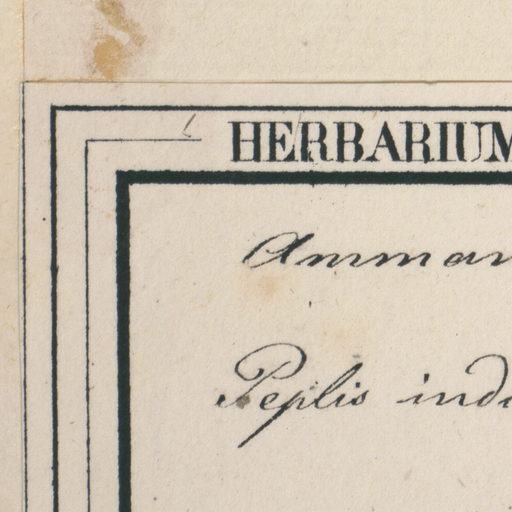 HERBARIUM
Amman
Peplis indi